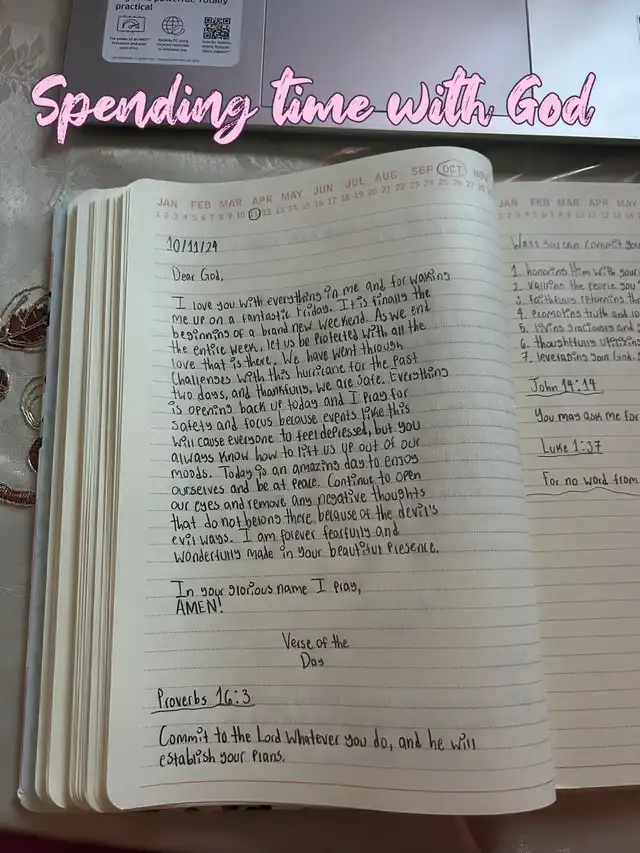 practical
Spending time with God
JAN FEB MAR APR MAY JUN JUL AUG SEP OCT NOV
1 2 3 4 5 6 7 8 9 10 11 12 13 14 15 16 17 18 19 20 21 22 23 24 25 26 27 28
10/11/24
Dear God,
I love you with everything in me and for waking
me up on a fantastic Friday. It is finally the
beginning of a brand new weekend. As we end
the entire week, let us be protected with all the
love that is there. We have went through
challenges with this hurricane for the past
two days, and thankfully, we are safe. Everything
is opening back up today and I pray for
safety and focus because events like this
will cause everyone to feel depressed, but you
always know how to lift us up out of our
moods. Today is an amazing day to enjoy
ourselves and be at peace. Continue to open
our eyes and remove any negative thoughts
that do not belong there because of the devil's
evil ways. I am forever fearfully and
wonderfully made in your beautiful presence.
In your glorious name I pray,
AMEN!
Verse of the
Day
Proverbs 16:3
Commit to the Lord whatever you do, and he will
establish your plans.
JAN FEB MAR APR MAY
Ways you can commit your
1. honoring Him with your
2. valuing the people you
3. faithfully returning the
4. promoting truth and
5. living graciously and
6. thoughtfully utilizing
7. leveraging your God-
John 14:14
You may ask me for
Luke 1:37
For no word from